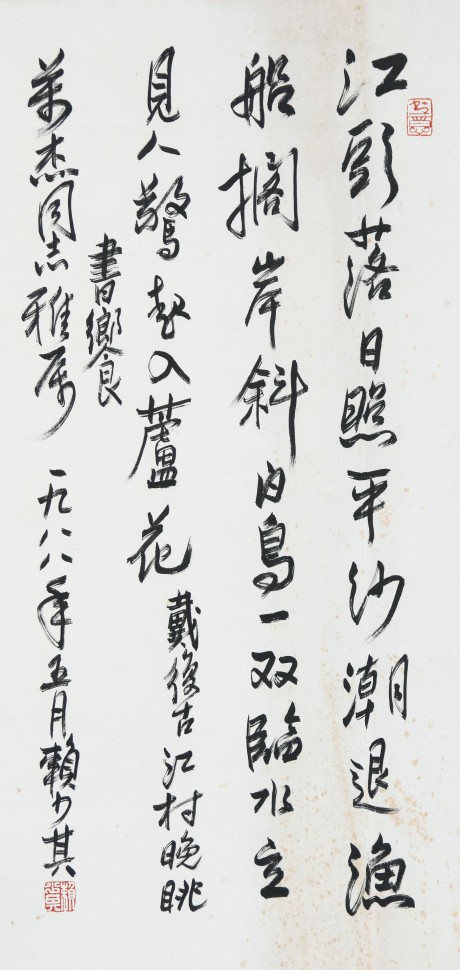 江頭落日照平沙潮退漁
船擱岸斜白鳥一双臨水立
見人驚起入蘆花
戴復古江村晚眺
書饗
萬杰同志雅属 一九八八年五月賴少其